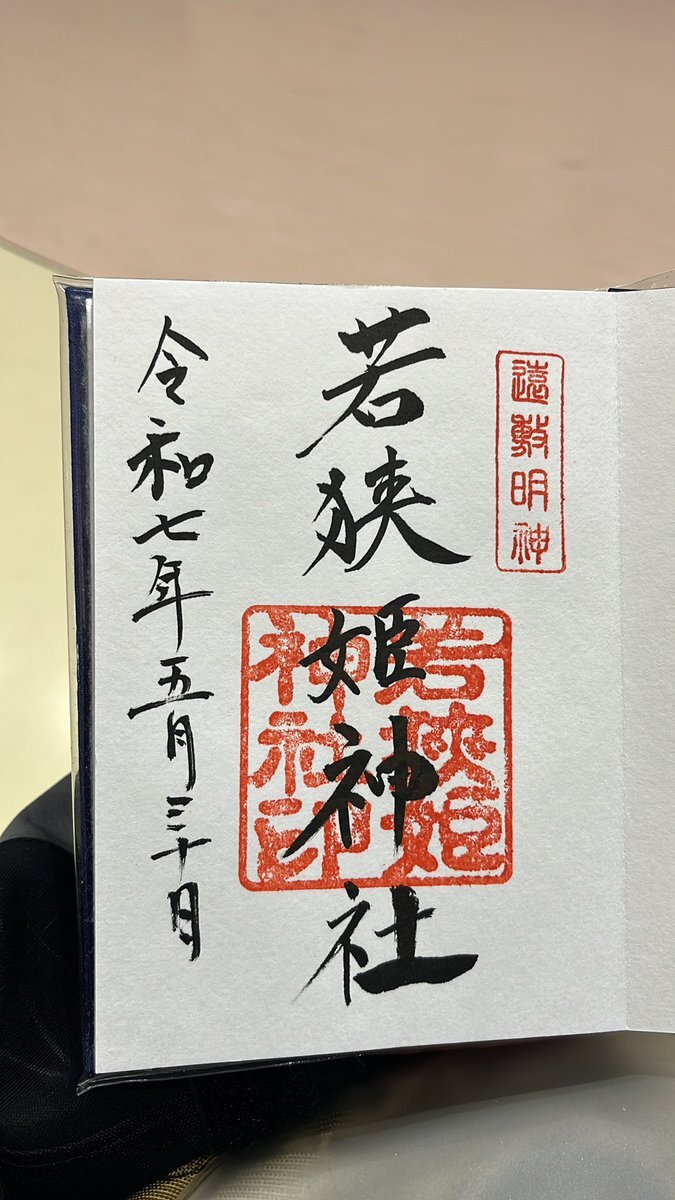 遠敷明神
若狭姫神社
若狭姫
神社印
令和七年五月三十日